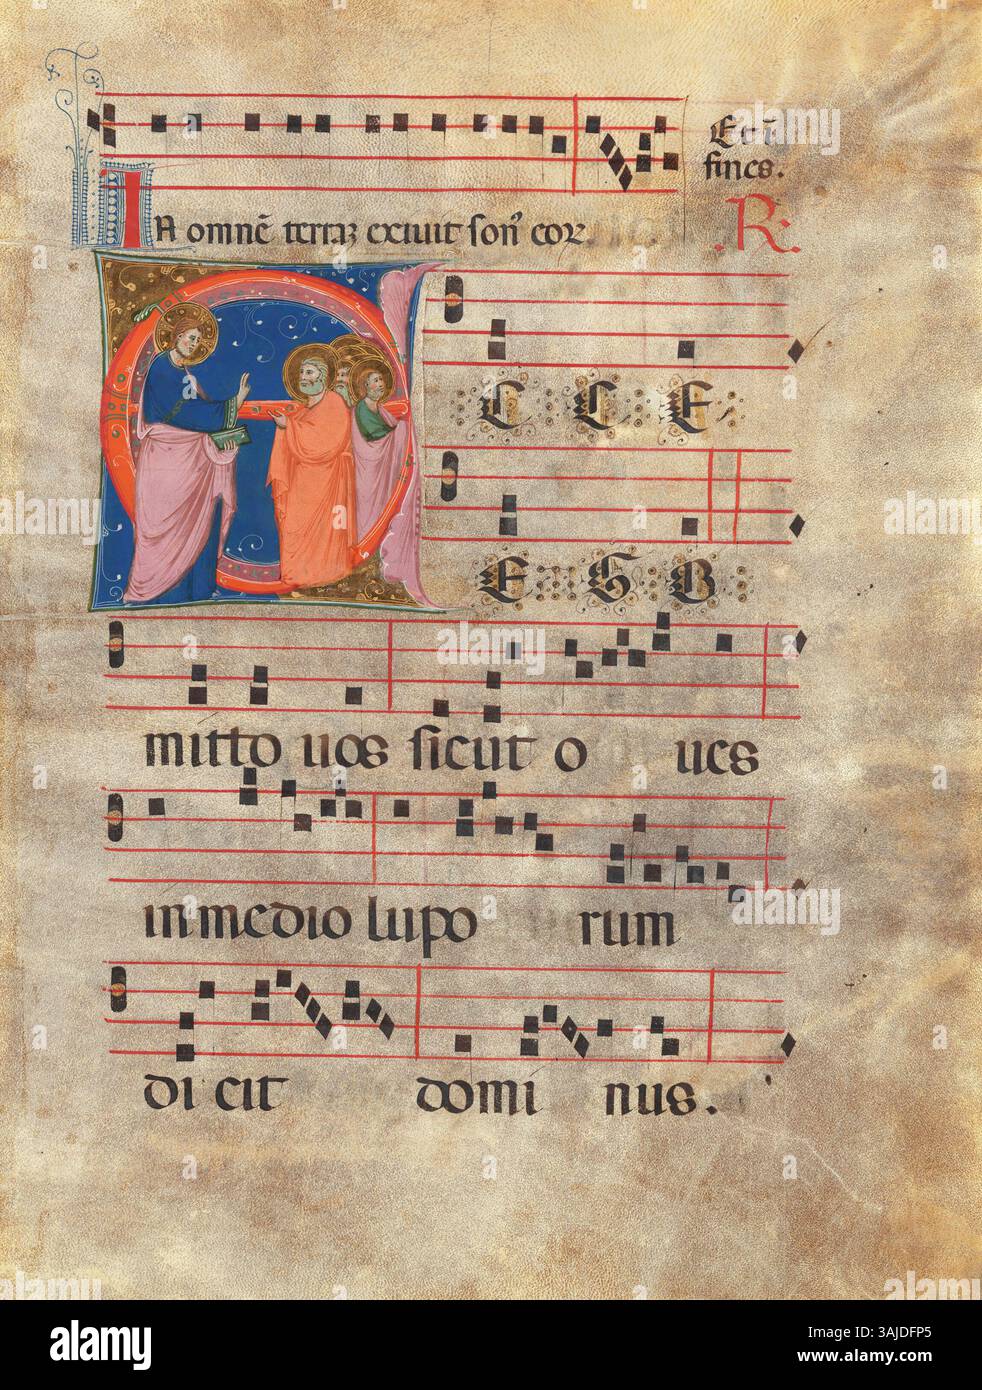 Et ī
fines.
IN omnē terraz exiuit son' cor.
R:
ECCE
EGO
mitto uos sicut oues
in medio luporum
dicit dominus.
alamy
Image ID: 3AJDFP5
www.alamy.com